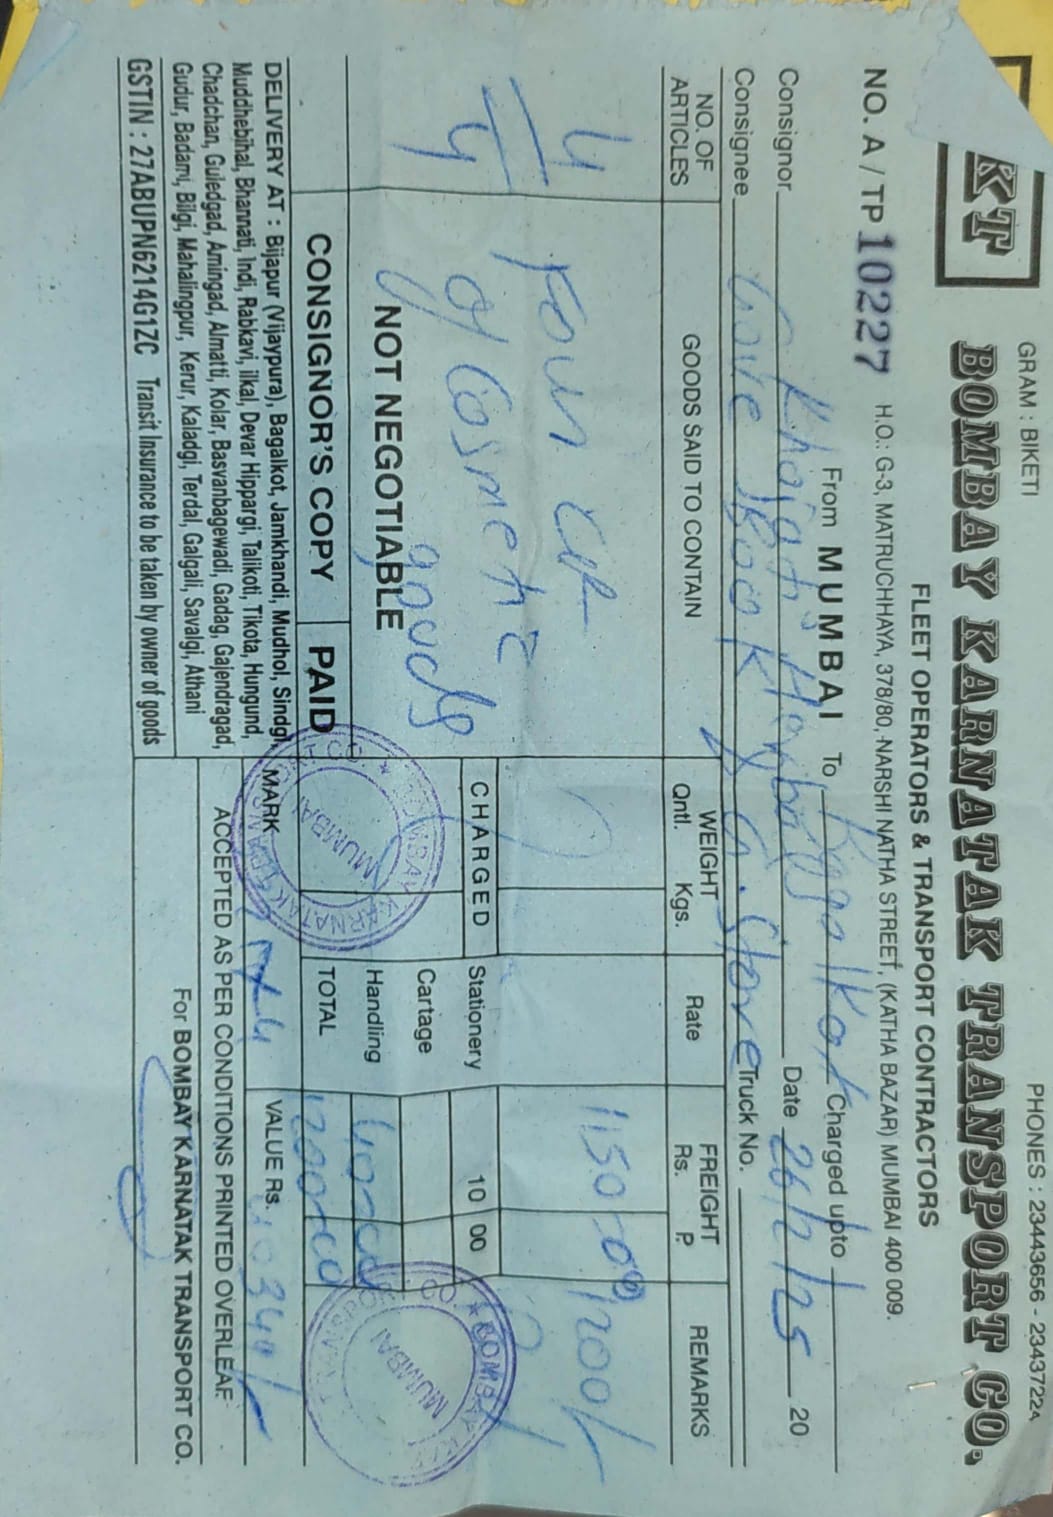 GRAM : BIKETI PHONES : 23443656 - 23437224
KT BOMBAY KARNATAK TRANSPORT CO.
FLEET OPERATORS & TRANSPORT CONTRACTORS
NO. A / TP 10227 H.O.: G-3, MATRUCHHAYA, 378/80, NARSHI NATHA STREET, (KATHA BAZAR) MUMBAI 400 009.
From MUMBAI To Charged upto
Consignor Date 26/2/25 20
Consignee Book Store Truck No.
NO. OF ARTICLES GOODS SAID TO CONTAIN WEIGHT Qntl. Kgs. Rate FREIGHT Rs. P. REMARKS
4 Four 1150 1200/-
of Cosmetic
goods
4
CHARGED Stationery 10 00
NOT NEGOTIABLE Cartage
Handling 40
CONSIGNOR'S COPY PAID TOTAL 1200
DELIVERY AT : Bijapur (Vijaypura), Bagalkot, Jamkhandi, Mudhol, Sindgi,
Muddhebihal, Bhannati, Indi, Rabkavi, ilkal, Devar Hippargi, Talikoti, Tikota, Hungund,
Chadchan, Guledgad, Amingad, Almatti, Kolar, Basvanbagewadi, Gadag, Gajendragad,
Gudur, Badami, Bilgi, Mahalingpur, Kerur, Kaladgi, Terdal, Galgali, Savalgi, Athani
MARK VALUE Rs.
ACCEPTED AS PER CONDITIONS PRINTED OVERLEAF
GSTIN : 27ABUPN6214G1ZC Transit Insurance to be taken by owner of goods
For BOMBAY KARNATAK TRANSPORT CO.
MUMBAI
MUMBAI